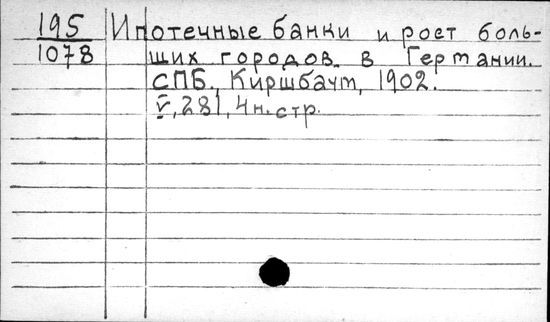 195 Ипотечные банки и рост боль-
1078 ших городов в Германии.
СПБ., Киршбаум, 1902.
V, 281, 4 н. стр.